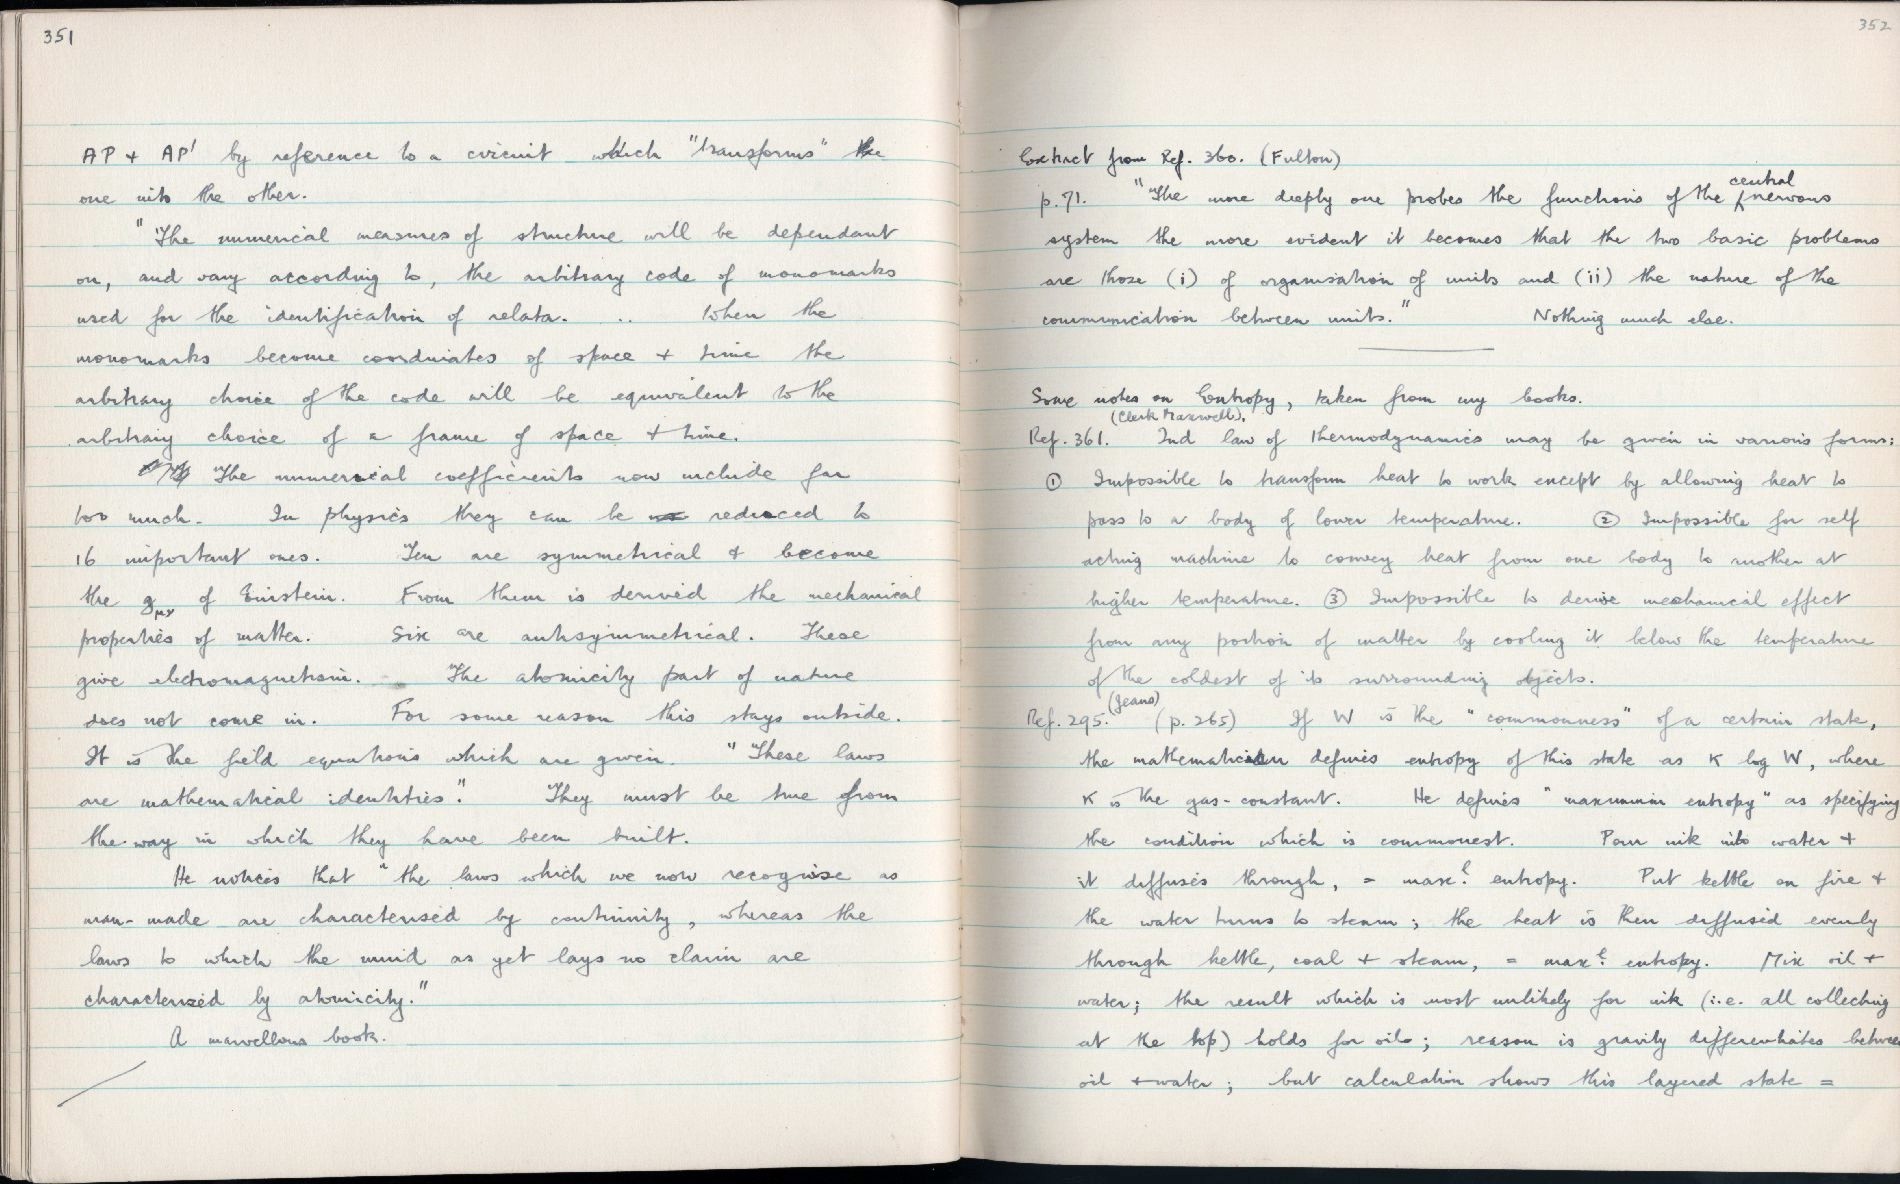 351
AP + AP' by reference to a circuit which "transforms" the
one into the other.
"The numerical measures of structure will be dependant
on, and vary according to, the arbitrary code of monomarks
used for the identification of relata. .. When the
monomarks become coordinates of space + time the
arbitrary choice of the code will be equivalent to the
arbitrary choice of a frame of space + time.
The numerical coefficients now include far
too much. In physics they can be reduced to
16 important ones. Ten are symmetrical & become
the gμν of Einstein. From them is derived the mechanical
properties of matter. Six are antisymmetrical. These
give electromagnetism. The atomicity part of nature
does not come in. For some reason this stays outside.
It is the field equations which are given. "These laws
are mathematical identities". They must be true from
the way in which they have been built.
He notices that "the laws which we now recognise as
man-made are characterised by continuity, whereas the
laws to which the mind as yet lays no claim are
characterized by atomicity."
A marvellous book.
352
Extract from Ref. 360. (Fulton)
p.71. "The more deeply one probes the functions of the central nervous
system the more evident it becomes that the two basic problems
are those (i) of organisation of units and (ii) the nature of the
communication between units." Nothing much else.
Some notes on Entropy, taken from my books.
(Clerk Maxwell).
Ref. 361. IInd law of thermodynamics may be given in various forms:
① Impossible to transform heat to work except by allowing heat to
pass to a body of lower temperature. ② Impossible for self
acting machine to convey heat from one body to another at
higher temperature. ③ Impossible to derive mechanical effect
from any portion of matter by cooling it below the temperature
of the coldest of its surrounding objects.
(Jeans)
Ref. 295. (p. 265) If W is the "commonness" of a certain state,
the mathematician defines entropy of this state as K log W, where
K is the gas-constant. He defines "maximum entropy" as specifying
the condition which is commonest. Pour ink into water +
it diffuses through, = max! entropy. Put kettle on fire +
the water turns to steam; the heat is then diffused evenly
through kettle, coal + steam, = max! entropy. Mix oil +
water; the result which is most unlikely for ink (i.e. all collecting
at the top) holds for oil; reason is gravity differentiates between
oil + water; but calculation shows this layered state =